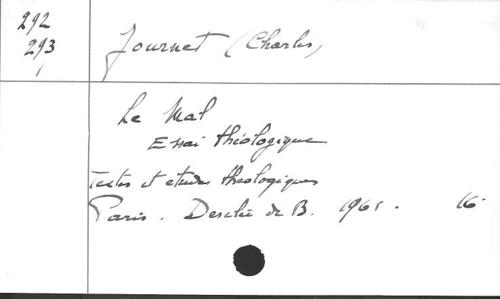 292
293
Journet (Charles)
Le Mal
Essai théologique
Textes et études théologiques
Paris. Desclée de B. 1961. 16